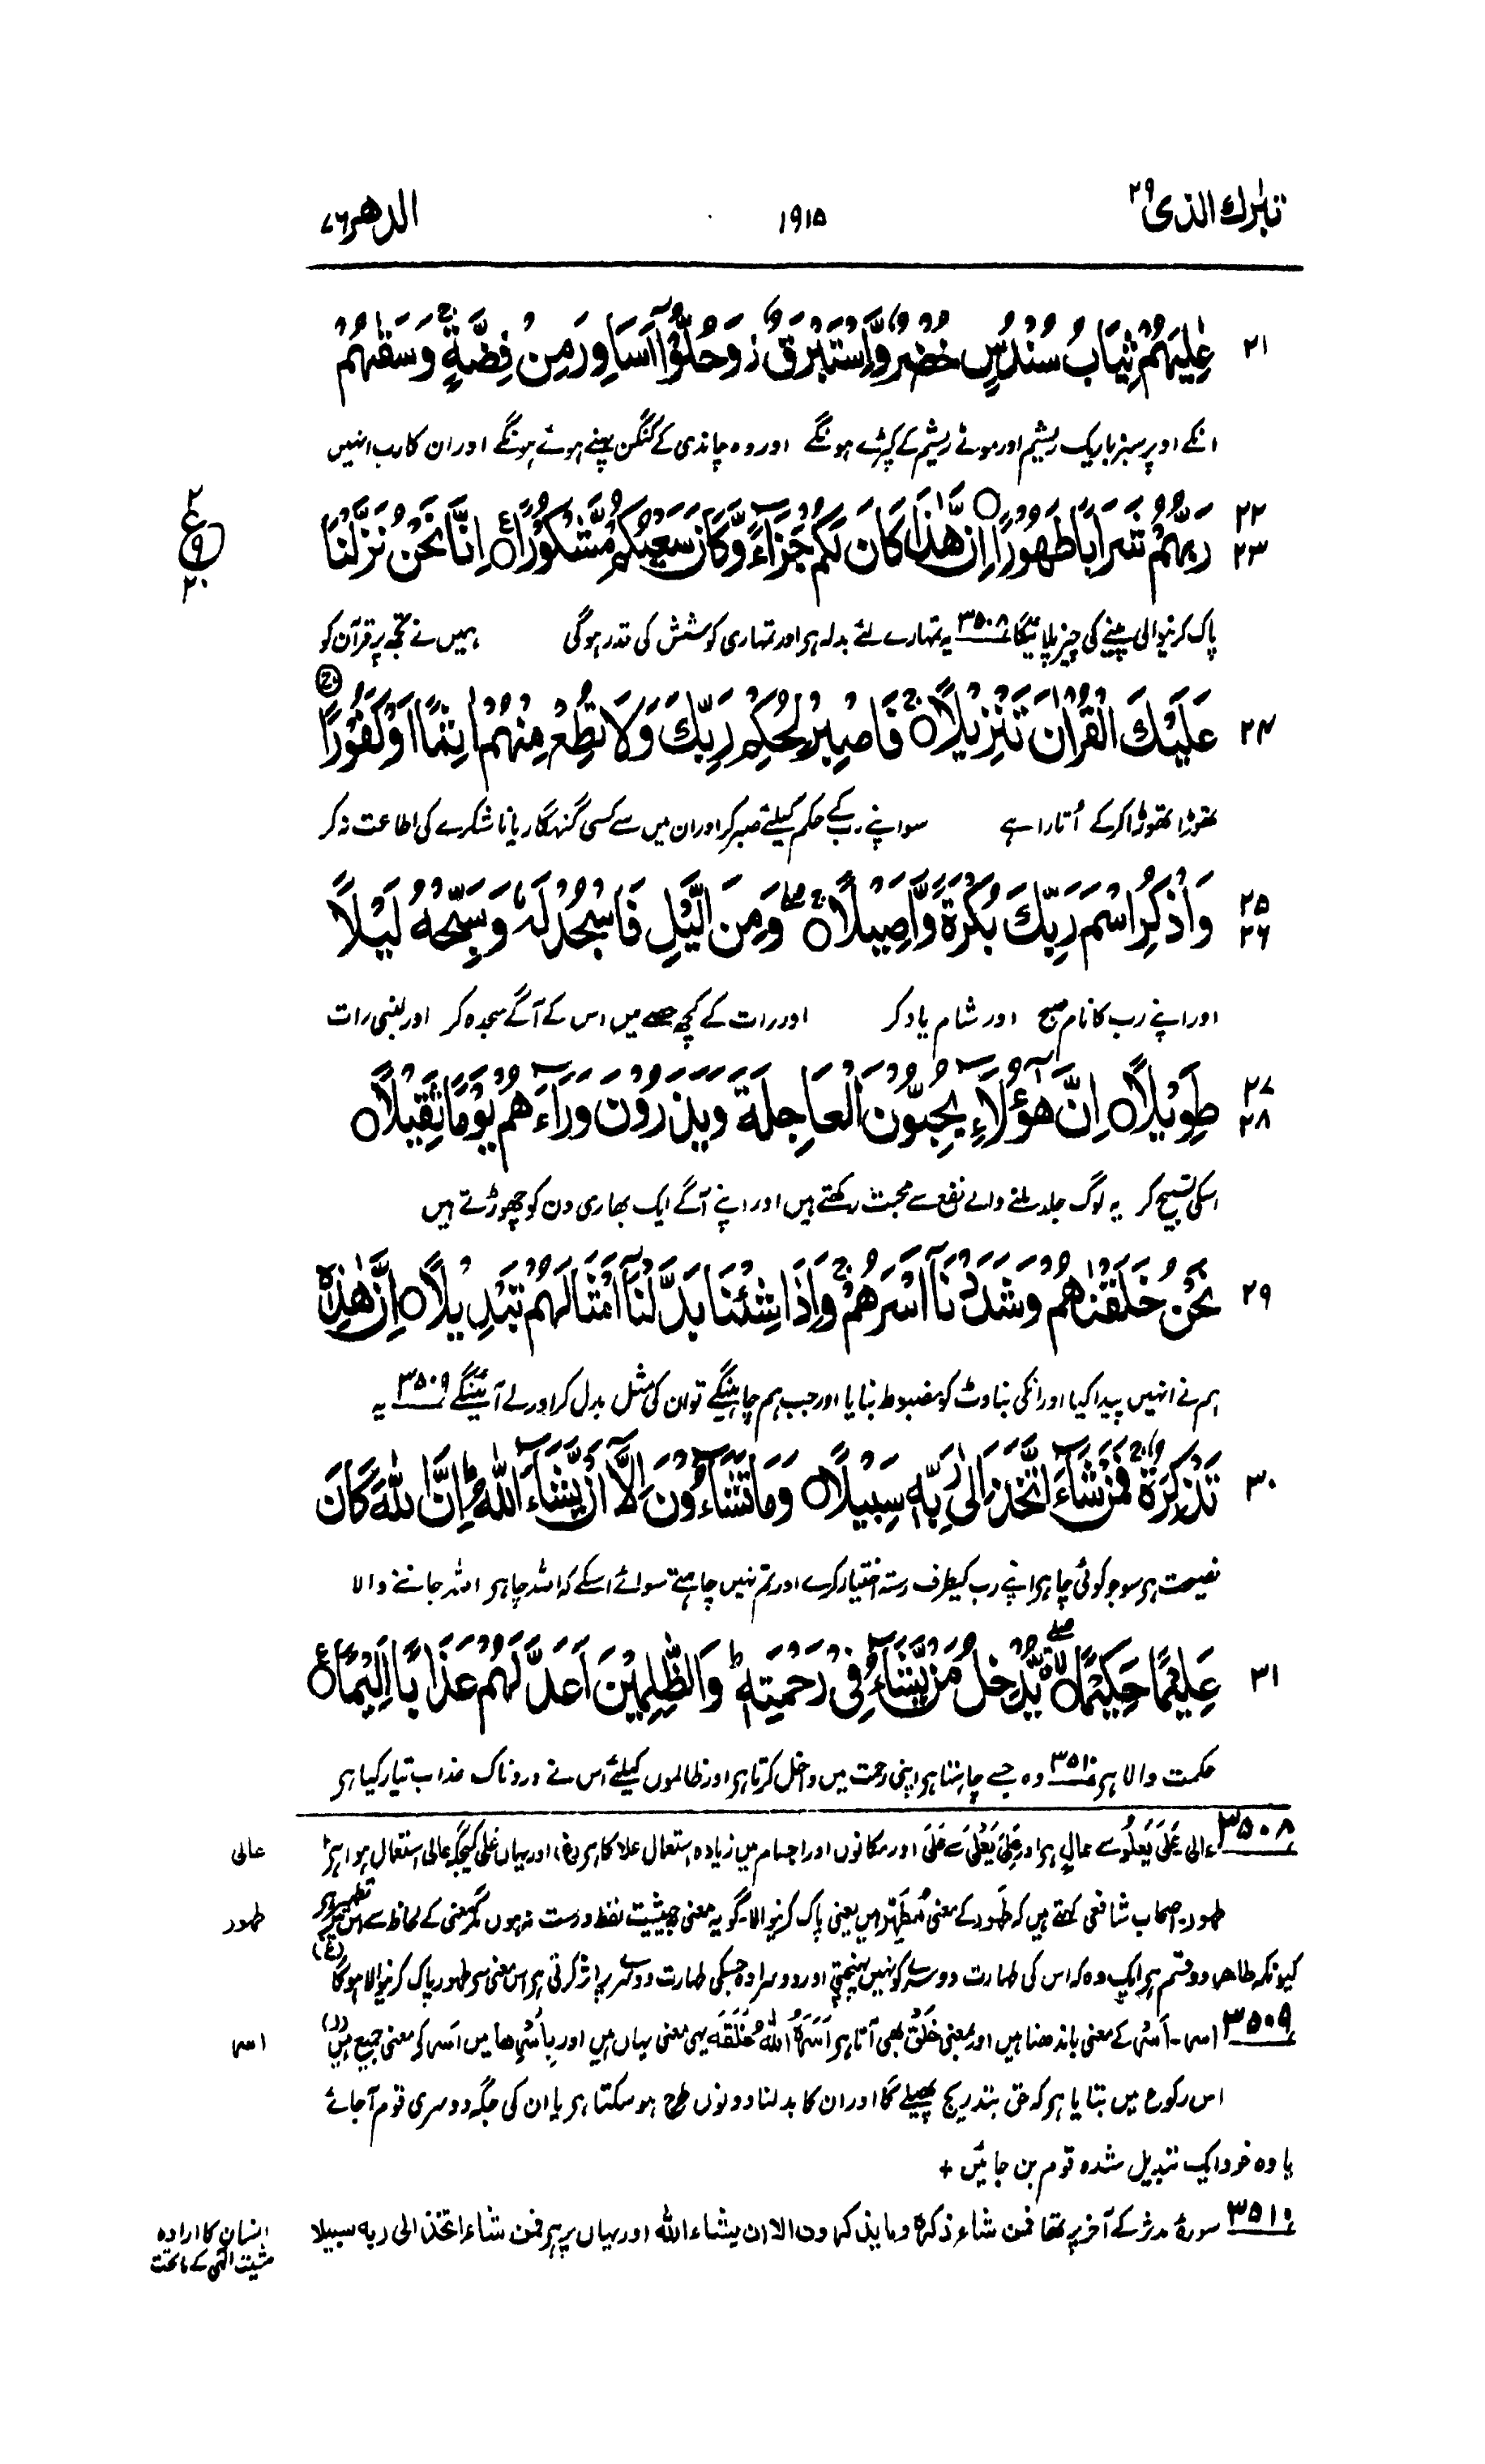 تبٰرك الذی ٢٩ ١٩١٥ الدهر ٧٦
٢١ عٰلِيَهُمْ ثِيَابُ سُنْدُسٍ خُضْرٌ وَّاِسْتَبْرَقٌ ز وَّحُلُّوْٓا اَسَاوِرَ مِنْ فِضَّةٍ ج وَسَقٰىهُمْ
انکے اوپر سبز باریک ریشم اور موٹے ریشم کے کپڑے ہونگے اور وہ چاندی کے کنگن پہنے ہوئے ہونگے اور ان کا رب انہیں
٢٢ ٢٣ رَبُّهُمْ شَرَابًا طَهُوْرًا ○ اِنَّ هٰذَا كَانَ لَكُمْ جَزَآءً وَّكَانَ سَعْيُكُمْ مَّشْكُوْرًا ○ ع اِنَّا نَحْنُ نَزَّلْنَا
٢ ع ٩ ٢٠
پاک کرنیوالی پینے کی چیز پلائیگا ٣٥٠٨ یہ تمہارے لئے بدلہ ہی اور تمہاری کوشش کی قدر ہوگی ہمیں نے تجھ پر قرآن کو
٢٤ عَلَيْكَ الْقُرْاٰنَ تَنْزِيْلًا ○ ج فَاصْبِرْ لِحُكْمِ رَبِّكَ وَلَا تُطِعْ مِنْهُمْ اٰثِمًا اَوْ كَفُوْرًا
تھوڑا تھوڑا کرکے اُتارا ہے سو اپنے رب کے حکم کیلئے صبر کر اور ان میں سے کسی گنہگار یا ناشکرے کی اطاعت نہ کر
٢٥ ٢٦ وَاذْكُرِ اسْمَ رَبِّكَ بُكْرَةً وَّاَصِيْلًا ○ ج وَمِنَ الَّيْلِ فَاسْجُدْ لَهٗ وَسَبِّحْهُ لَيْلًا
اور اپنے رب کا نام صبح اور شام یاد کر اور رات کے کچھ حصے میں اس کے آگے سجدہ کر اور لنبی رات
٢٧ ٢٨ طَوِيْلًا ○ اِنَّ هٰٓؤُلَآءِ يُحِبُّوْنَ الْعَاجِلَةَ وَيَذَرُوْنَ وَرَآءَهُمْ يَوْمًا ثَقِيْلًا ○
اسکی تسبیح کر یہ لوگ جلد ملنے والے نفع سے محبت رکھتے ہیں اور اپنے آگے ایک بھاری دن کو چھوڑتے ہیں
٢٩ نَحْنُ خَلَقْنٰهُمْ وَشَدَدْنَآ اَسْرَهُمْ ج وَاِذَا شِئْنَا بَدَّلْنَآ اَمْثَالَهُمْ تَبْدِيْلًا ○ اِنَّ هٰذِهٖ
ہم نے انہیں پیدا کیا اور انکی بناوٹ کو مضبوط بنایا اور جب ہم چاہینگے تو ان کی مثل بدل کر اور لے آئینگے ٣٥٠٩ یہ
٣٠ تَذْكِرَةٌ ج فَمَنْ شَآءَ اتَّخَذَ اِلٰى رَبِّهٖ سَبِيْلًا ○ وَمَا تَشَآءُوْنَ اِلَّآ اَنْ يَّشَآءَ اللّٰهُ ط اِنَّ اللّٰهَ كَانَ
نصیحت ہی سو جو کوئی چاہی اپنے رب کیطرف رستہ اختیار کرے اور تم نہیں چاہتے سوائے اسکے کہ اللہ چاہی اللہ جاننے والا
٣١ عَلِيْمًا حَكِيْمًا ○ يُّدْخِلُ مَنْ يَّشَآءُ فِيْ رَحْمَتِهٖ ط وَالظّٰلِمِيْنَ اَعَدَّ لَهُمْ عَذَابًا اَلِيْمًا ○ ع
حکمت والا ہی ٣٥١٠ وہ جسے چاہتا ہی اپنی رحمت میں داخل کرتا ہی اور ظالموں کیلئے اس نے دردناک عذاب تیار کیا ہی
٣٥٠٨ عالی عَلَیٰ یَعْلُو سے عالٍ ہی اور عَلِیَ یَعْلیٰ سے عَلَی اور مکانوں اور اجسام میں زیادہ استعمال علا کا ہی (غ) اور یہاں علیٰ کیجگہ عالی استعمال ہوا ہی
عالی
طہور۔ اصحاب شافعی کہتے ہیں کہ طَہور کے معنی مُطَہِّر ہیں یعنی پاک کرنیوالا۔ گو یہ معنی بحیثیت لفظ درست نہ ہوں مگر معنی کے لحاظ سے اس میں تطہیر ہی
طہور
کیونکہ طاہر دو قسم ہی ایک وہ کہ اس کی طہارت دوسرے کو نہیں پہنچتی اور دوسرا وہ جسکی طہارت دوسرے پر اثر کرتی ہی اس معنی سی طہور پاک کرنیوالا ہوگا (غ)
٣٥٠٩ اسر۔ اَسْر کے معنی باندھنا ہیں اور بمعنی خَلْق بھی آتا ہی اَسَرَہُ اللّٰہُ خَلَقَہ یہی معنی یہاں ہیں اور بِاَسْرِھا میں اَسر کے معنی جمیع ہیں (ل)
اسر
اس رکوع میں بتایا ہی کہ حق بتدریج پھیلے گا اور ان کا بدلنا دونوں طرح ہو سکتا ہی یا ان کی جگہ دوسری قوم آجائے
یا وہ خود ایک تبدیل شدہ قوم بن جائیں +
٣٥١٠ سورۂ مدثر کے آخر پر تھا فمن شاء ذکرہ وما یذکرون الا ان یشاء اللہ اور یہاں پر ہی فمن شاء اتخذ الی ربہ سبیلا
انسان کا ارادہ
مشیت الٰہی کے ماتحت